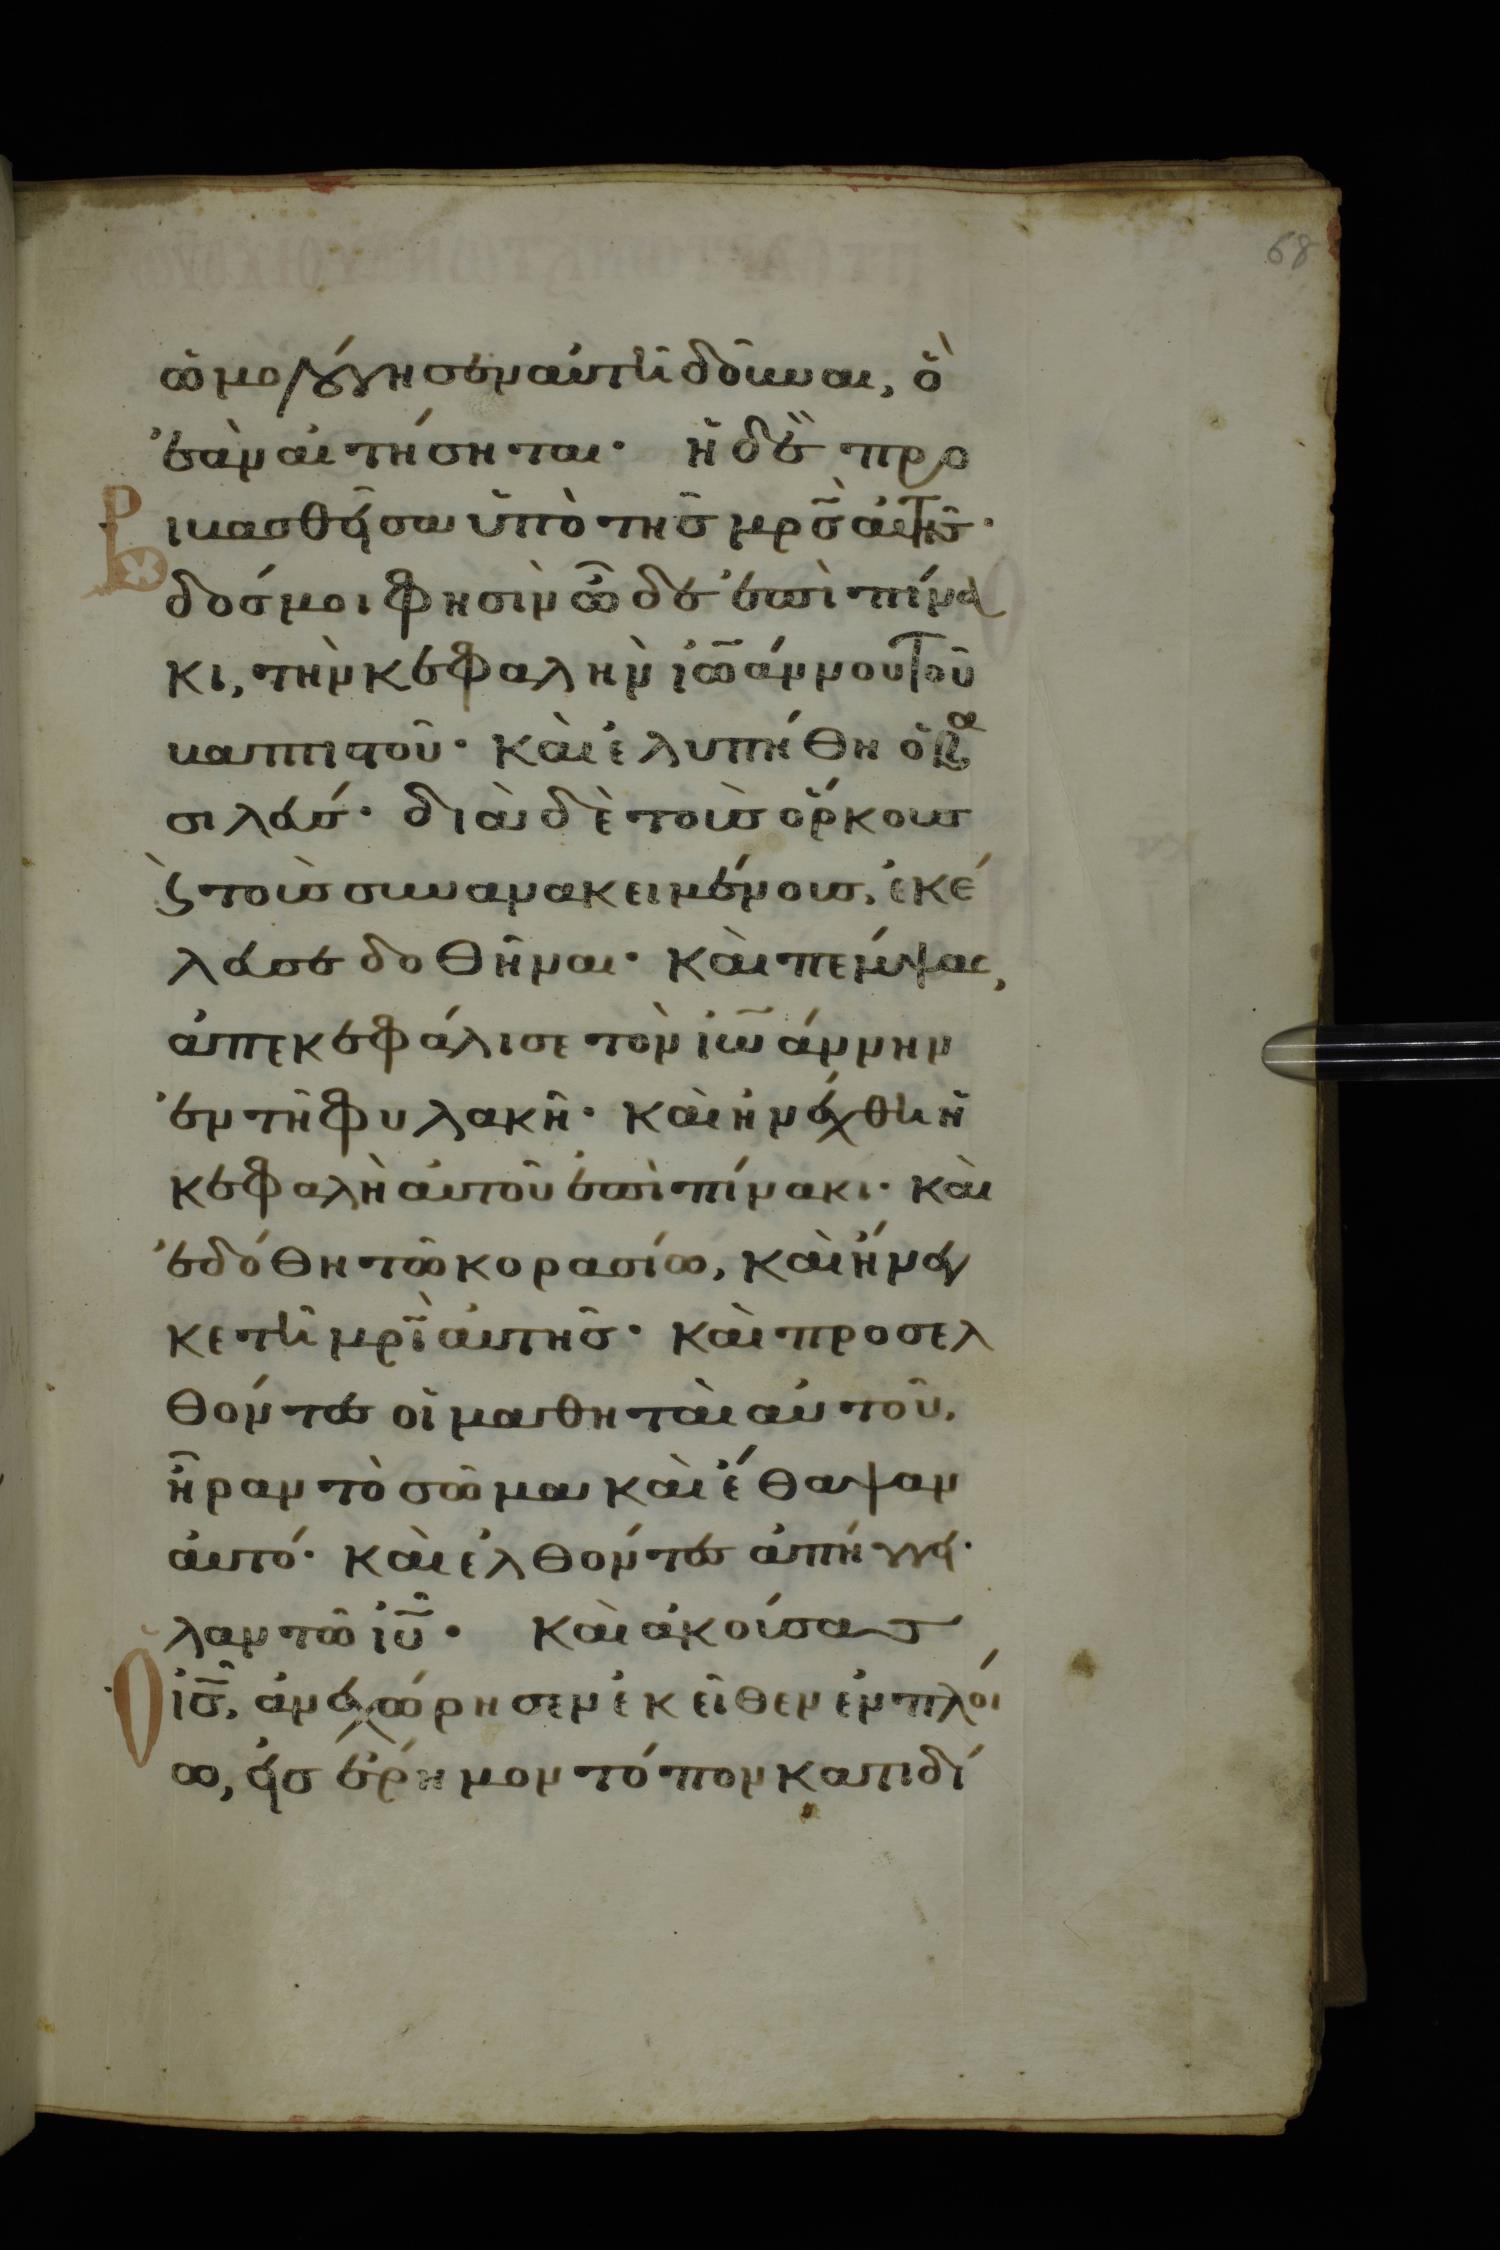 68
ὡμολόγησεν αὐτῆ δοῦναι, ὃ
ἐὰν αἰτήσηται· ἡ δὲ προ
βιβασθεῖσα ὑπὸ τῆς μρ̅ς αὐτῆς·
δός μοι φησὶν ὧδε ἐπὶ πίνα
κι, τὴν κεφαλὴν ἰωάννου τοῦ
βαπτιστοῦ· καὶ ἐλυπήθη ὁ βα
σιλεύς· διὰ δὲ τοὺς ὅρκους
ϗ τοὺς συνανακειμένους, ἐκέ
λευσε δοθῆναι· καὶ πέμψας,
ἀπεκεφάλισε τὸν ἰωάννην
ἐν τῆ φυλακῆ· καὶ ἠνέχθη ἡ
κεφαλὴ αὐτοῦ ἐπὶ πίνακι· καὶ
ἐδόθη τῶ κορασίω, καὶ ἤνεγ
κε τῆ μρ̅ὶ αὐτῆς· καὶ προσελ
θόντες οἱ μαθηταὶ αὐτοῦ,
ἦραν τὸ σῶμα καὶ ἔθαψαν
αὐτό· καὶ ἐλθόντες ἀπήγγει
λαν τῶ ἰ̅υ̅· καὶ ἀκούσας
Ὁ ἰ̅ς̅, ἀνεχώρησεν ἐκεῖθεν ἐν πλοί
ω, εἰς ἔρημον τόπον κατιδί